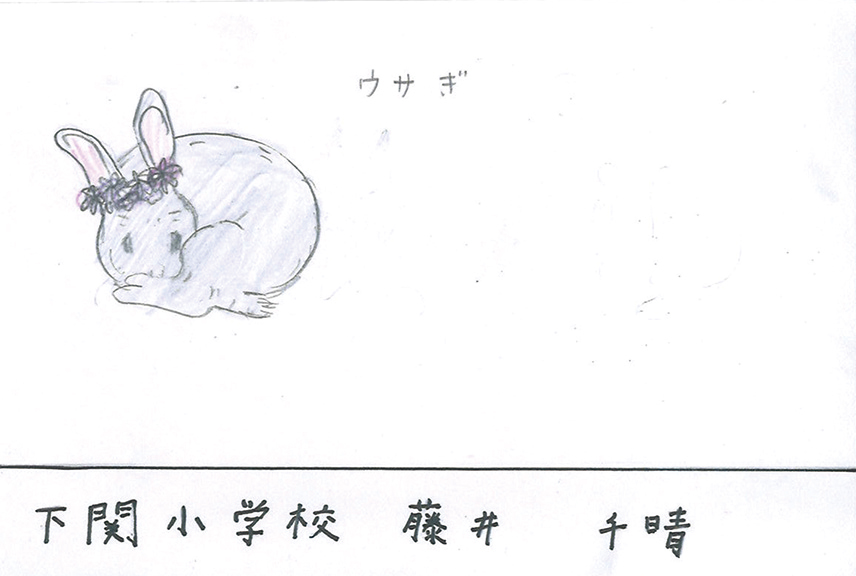 ウサぎ
下関小学校 藤井 千晴